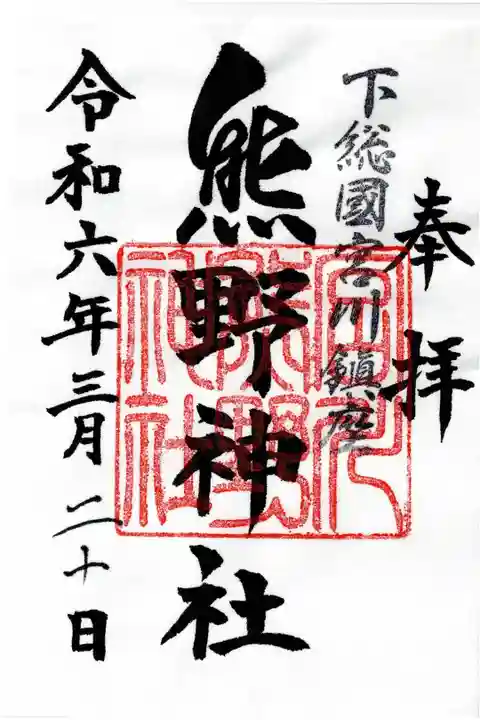 奉拝
下総國宮川鎮座
熊野神社
宮川
熊野
神社
令和六年三月二十日